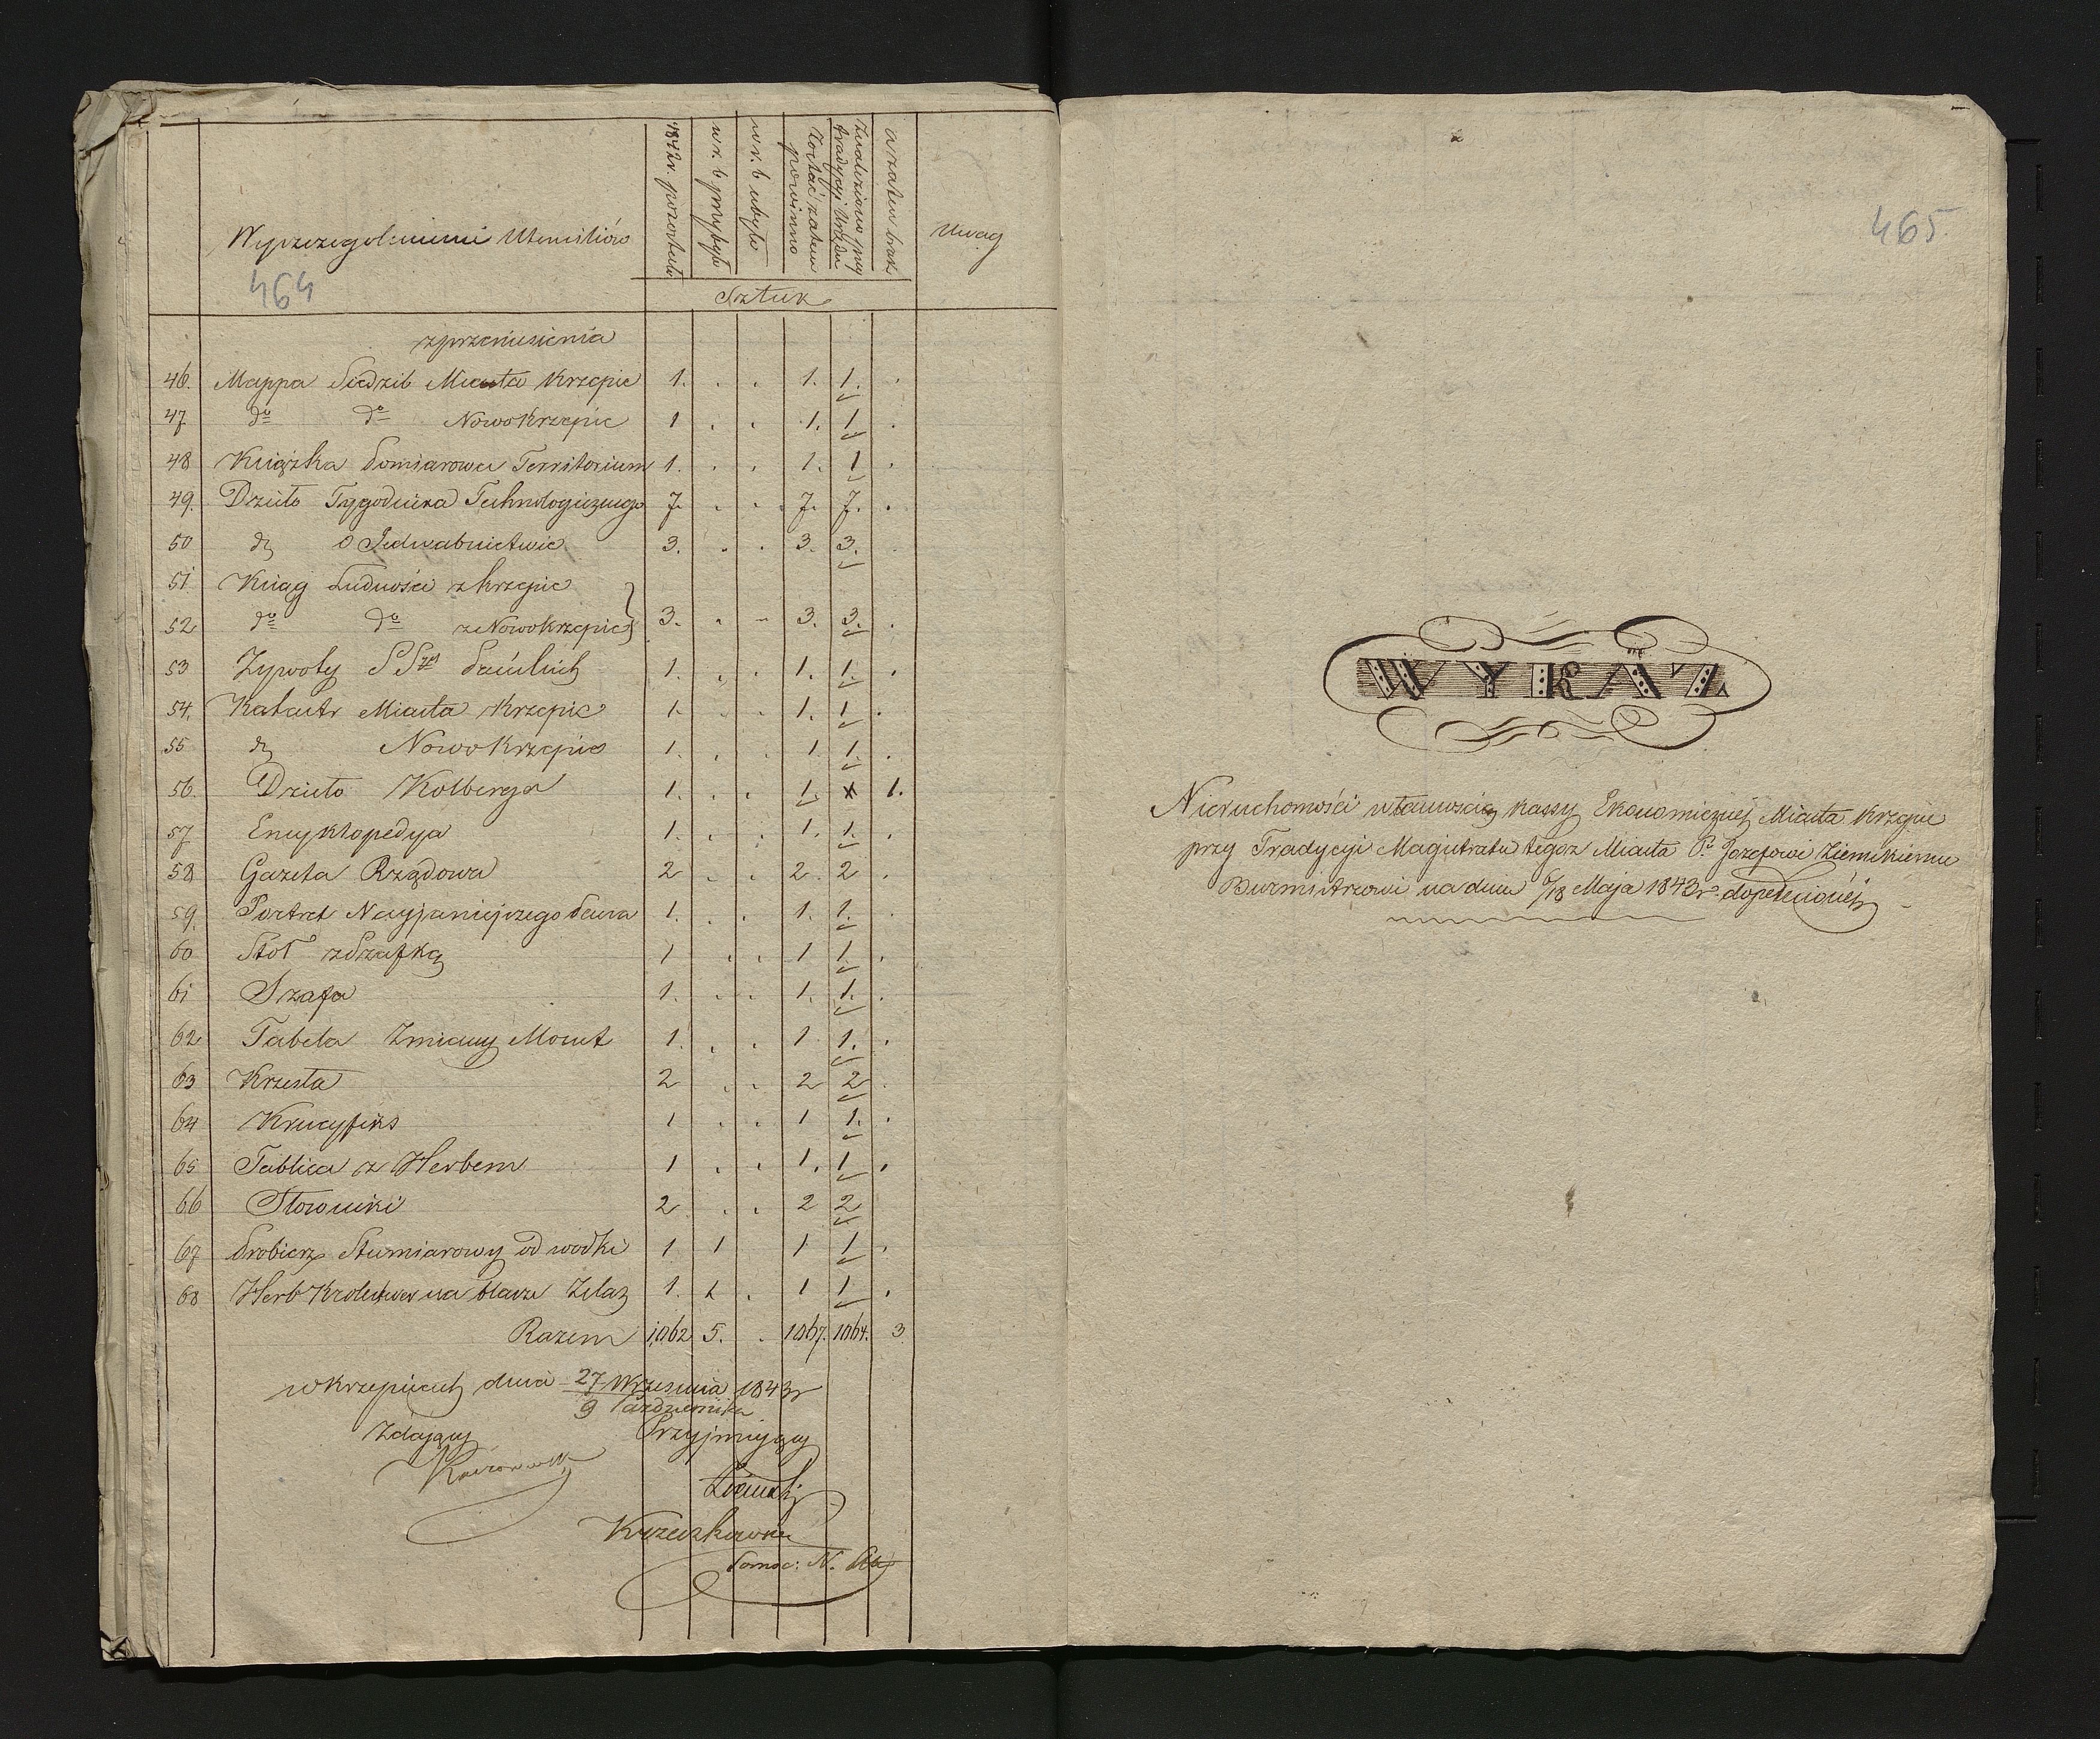 Wyszczegolnienie Utensiliow
1842r. pozostało
w r. b przybyło
w r. b ubyło
Zostać zatem powinno
Znaleziono przy tradycyi Urzędu
a zatem brak
Uwagi
464
Sztuk
z przeniesienia
46. Mappa Siedzib Miasta Krzepic 1. . . 1. 1. .
47 do do Nowokrzepic 1 . . 1. 1. .
48 Książka Pomiarowa Territorium 1. . . 1. 1 .
49. Dzieło Tygodnika Technologicznego 7. . . 7. 7. .
50 do O Jedwabnictwie 3. . . 3. 3. .
51 Kciąg Ludności z Krzepic
52 do do z Nowokrzepic } 3. . . 3. 3. .
53 Zywoty SSrs Pańskich 1. . . 1. 1. .
54. Katastr Miasta Krzepic 1. . . 1. 1 .
55 do Nowokrzepic 1. . . 1 1. .
56. Dzieło Kolberga 1. . . 1. x 1.
57 Encyklopedya 1. . . 1. 1. .
58 Gazeta Rządowa 2 . . 2. 2 .
59. Portret Nayjaniejszego Pana 1. . . 1. 1. .
60 Stoł z Szafką 1 . . 1 1. .
61 Szafa 1. . . 1. 1. .
62 Tabela Zmiany Monet 1. . . 1 1. .
63 Krzesła 2 . . 2 2 .
64 Krucyfiks 1 . . 1 1. .
65 Tablica z Herbem 1 . . 1. 1 .
66 Słowniki 2 . . 2 2
67 Probierz Stumiarowy od wodki 1 1 1 1 .
68 Herb Krolestwa na blasze Zelaz 1. 1 . 1 1 .
Razem 1,062 5. . 1067. 1064. 3
w Krzepicach dnia 27 Wrzesnia 1843r
9 Pazdziernika
Zdaiący Przyjmujący
Ziemski
Pomoc: N.
465.
WYKAZ
Nieruchomości własnością kassy Ekonomicznej Miasta Krzepic
przy Tradycyi Magistratu tegoz Miasta Pu Jozefowi Ziemskiemu
Burmistrzowi na dniu 6/18 Maja 1843r. dopełnionéj